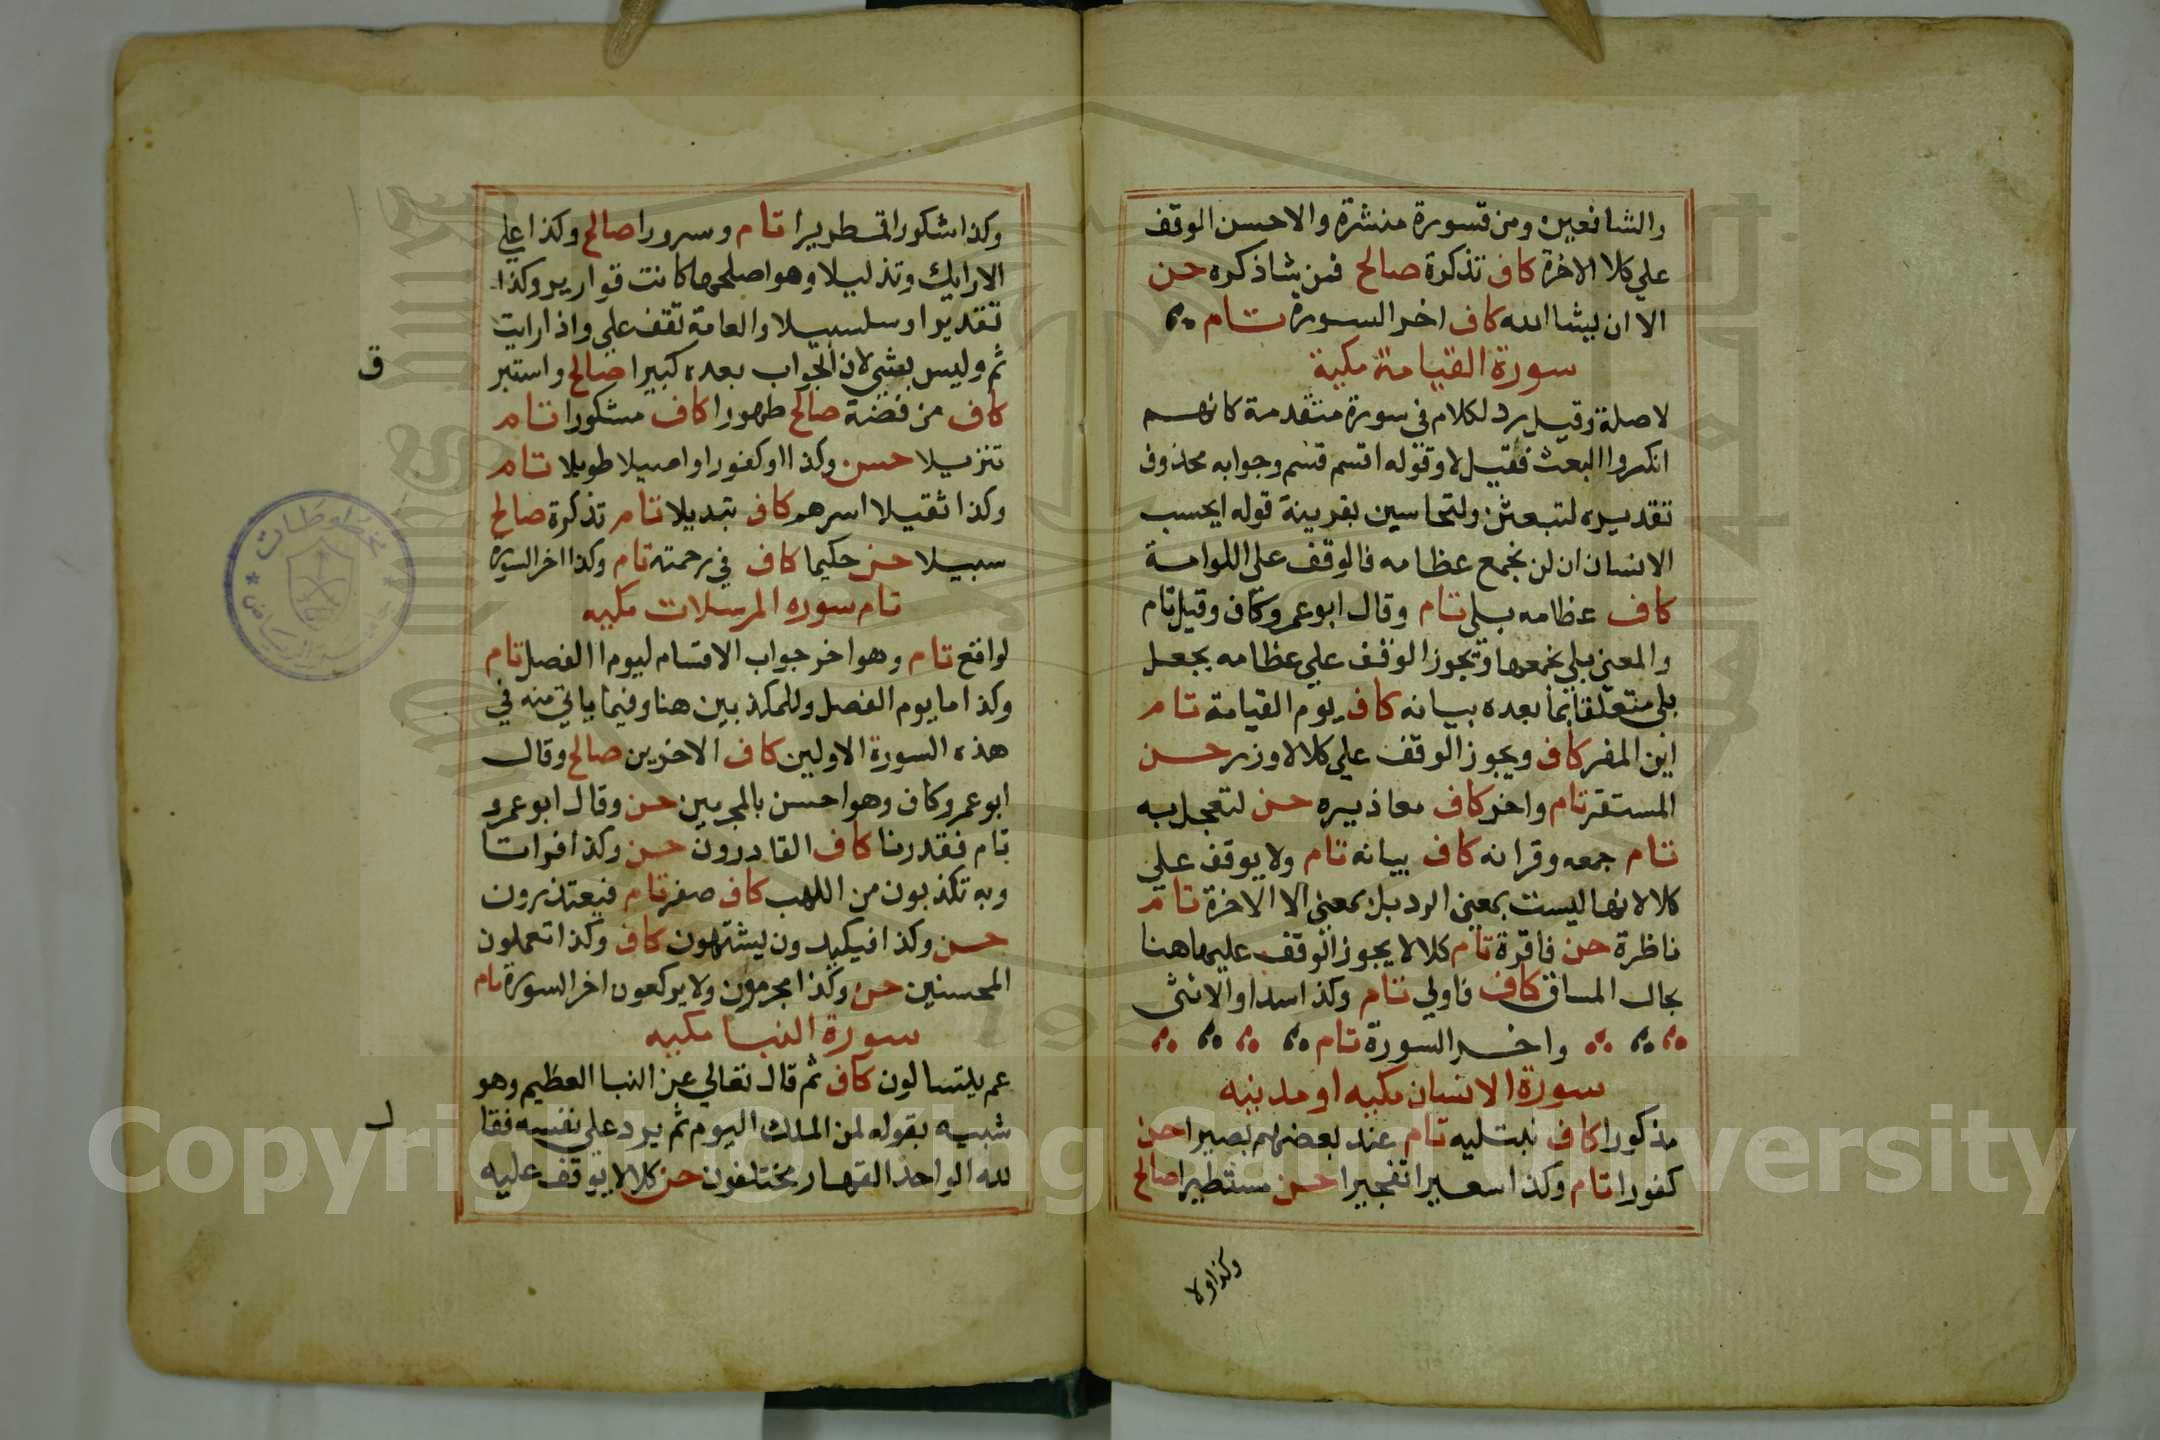 والشافعين ومن قسورة منشرة والاحسن الوقف
علي كلا الاخرة كاف تذكرة صالح فمن شا ذكره حسن
الا ان يشا الله كاف اخر السورة تام
سورة القيامة مكية
لا صلة وقيل رد لكلام في سورة متقدمة كانهم
انكروا البعث فقيل لا وقوله اقسم قسم وجوابه محذوف
تقديره لتبعثن ولتحاسبن بقرينة قوله ايحسب
الانسان ان لن نجمع عظامه فالوقف علي اللوامة
كاف عظامه بلي تام وقال ابو عمرو كاف وقيل تام
والمعني بلي نجمعها ويجوز الوقف علي عظامه بجعل
بلي متعلقا بما بعده بيانه كاف يوم القيامة تام
اين المفر كاف ويجوز الوقف علي كلا لا وزر حسن
المستقر تام واخر كاف معاذيره حسن لتعجل به
تام جمعه وقرانه كاف بيانه تام ولا يوقف علي
كلا لانها ليست بمعني الرد بل بمعني الا الاخرة تام
ناظرة حسن فاقرة تام كلا لا يجوز الوقف عليها هنا
بحال المساق كاف فاولي تام وكذا سدا والانثي
واخر السورة تام
سورة الانسان مكيه او مدنيه
مذكورا كاف نبتليه تام عند بعضهم بصيرا حسن
كفورا تام وكذا سعيرا تفجيرا حسن مستطيرا صالح
وكذا ولا
وكذا شكورا قمطريرا تام وسرورا صالح وكذا علي
الارايك وتذليلا وهو اصلحها كانت قوارير وكذا
تقديرا وسلسبيلا والعامة تقف علي واذا رايت
ثم وليس بشي لان الجواب بعده كبيرا صالح واستبر
ق
كاف من فضة صالح طهورا كاف مشكورا تام
تنزيلا حسن وكذا او كفورا واصيلا طويلا تام
وكذا ثقيلا اسرهم كاف تبديلا تام تذكرة صالح
سبيلا حسن حكيما كاف في رحمته تام وكذا اخر السورة
تام سوره المرسلات مكيه
لواقع تام وهو اخر جواب الاقسام ليوم الفصل تام
وكذا ما يوم الفصل وللمكذبين هنا وفيما ياتي منه في
هذه السورة الاولين كاف الاخرين صالح وقال
ابو عمرو كاف وهو احسن بالمجرمين حسن وقال ابو عمرو
تام فقدرنا كاف القادرون حسن وكذا فراتا
وبه تكذبون من اللهب كاف صفر تام فيعتذرون
حسن وكذا فيكيدون يشتهون كاف وكذا تعملون
المحسنين حسن وكذا مجرمون ولا يركعون اخر السورة تام
سورة النبا مكيه
عم يتسالون كاف ثم قال تعالي عن النبا العظيم وهو
شبيه بقوله لمن الملك اليوم ثم يرد علي نفسه فقا
ل
لله الواحد القهار مختلفون حسن كلا لا يوقف عليه
Copyright © King Saud University